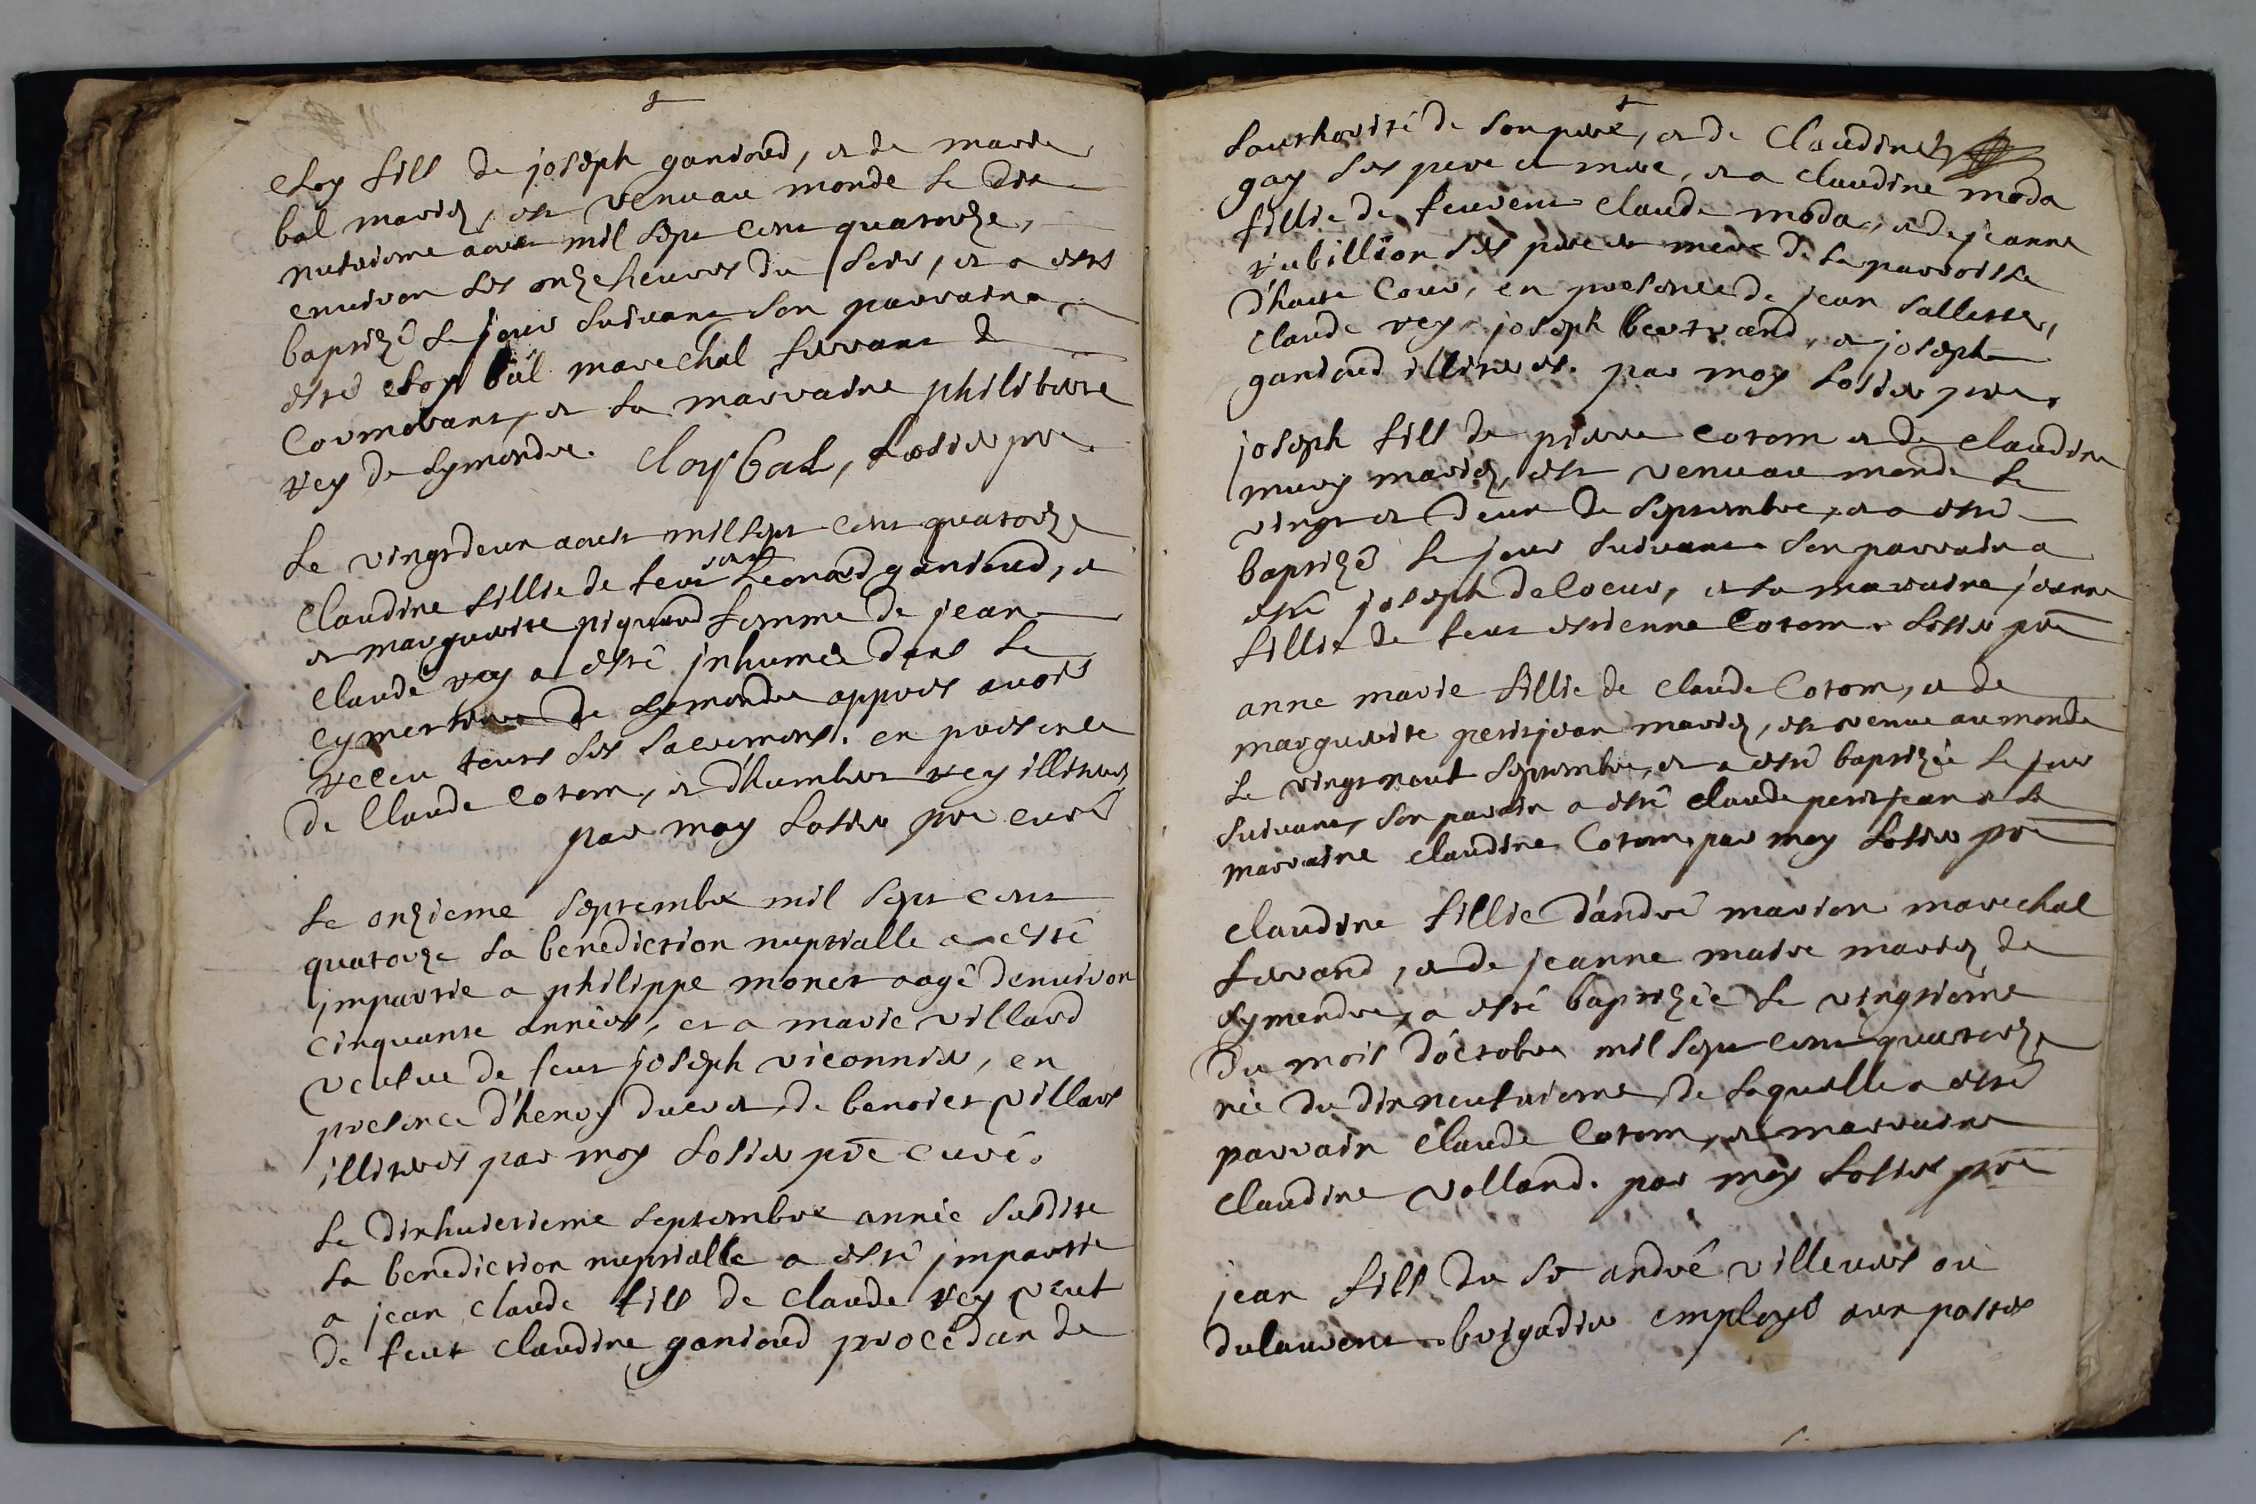 eloy fill de joseph gandoud, et de marie
bal mariez, est venu au monde le dix
neuvieme aout mil sept cent quatorze,
environ les onze heures du soir, et a esté
baptizé le jour suivant son parrain a
esté eloy bal marechal ferrant de
Cormorant, et sa marraine philiberte
rey de symandre. eloy bal, Losier pre.
Le vingtdeux aout mil sept cent quatorze
Claudine fillie de feu Leonard gandoud, et
et marguerite piquand femme de jean
Claude rey a esté inhumée dans le
cymentiere de symandre appres avoir
receu tous ses sacremens. en presence
de Claude Cotton, et d'humbert rey illiterez
par moy Losier pre curé
Le onzieme septembre mil sept cent
quatorze la benediction nuptialle a esté
impartie a philippe monet aagé denviron
cinquante années, et a marie villard
veufue de feut joseph viconnier, en
presence d'henry ducret, de benoict villard
illiteres par moy Losier pre curé.
Le dixhuictieme septembre année susdite
la benediction nuptialle a esté impartie
a jean claude fill de claude rey veuf
de feut claudine gandoud procedan de
Lauthorité de son pere, et de Claudine
gay ses pere et mere, et a claudine moda
fillie de feu claude moda, et de jeanne
rubillion ses pere et mere de la parroisse
d'haute Cour, en presence de jean sallette,
Claude rey, joseph bertrand, et joseph
gandoud illiteres. par moy Losier pre.
joseph fill de pierre cotom et de claudine
mury mariez, est venu au monde le
vingt et deux de septembre, et a esté
baptizé le jour suivant son parrain a
esté joseph delocur, et sa marraine jeanne
fillie de feut estienne Cotom. Losier pre
anne marie fillie de claude Cotom, et de
marguerite petitjean mariez, est venue au monde
le vingt neuf septembre, et a esté baptizée le jour
suivant, son parrain a esté claude petitjean et sa
marraine claudine Cotom, par moy Losier pre
Claudine fillie d'andré marion marechal
ferrand, et de jeanne maire mariez de
symandre, a esté baptizée le vingtieme
du mois d'octobre mil sept cent quatorze
née du dixneufvieme, de laquelle a esté
parrain Claude Cotom, et marraine
Claudine volland. par moy Losier pre
jean fill du sr andré villeurs ou
dulaurent brigadier employé aux postes